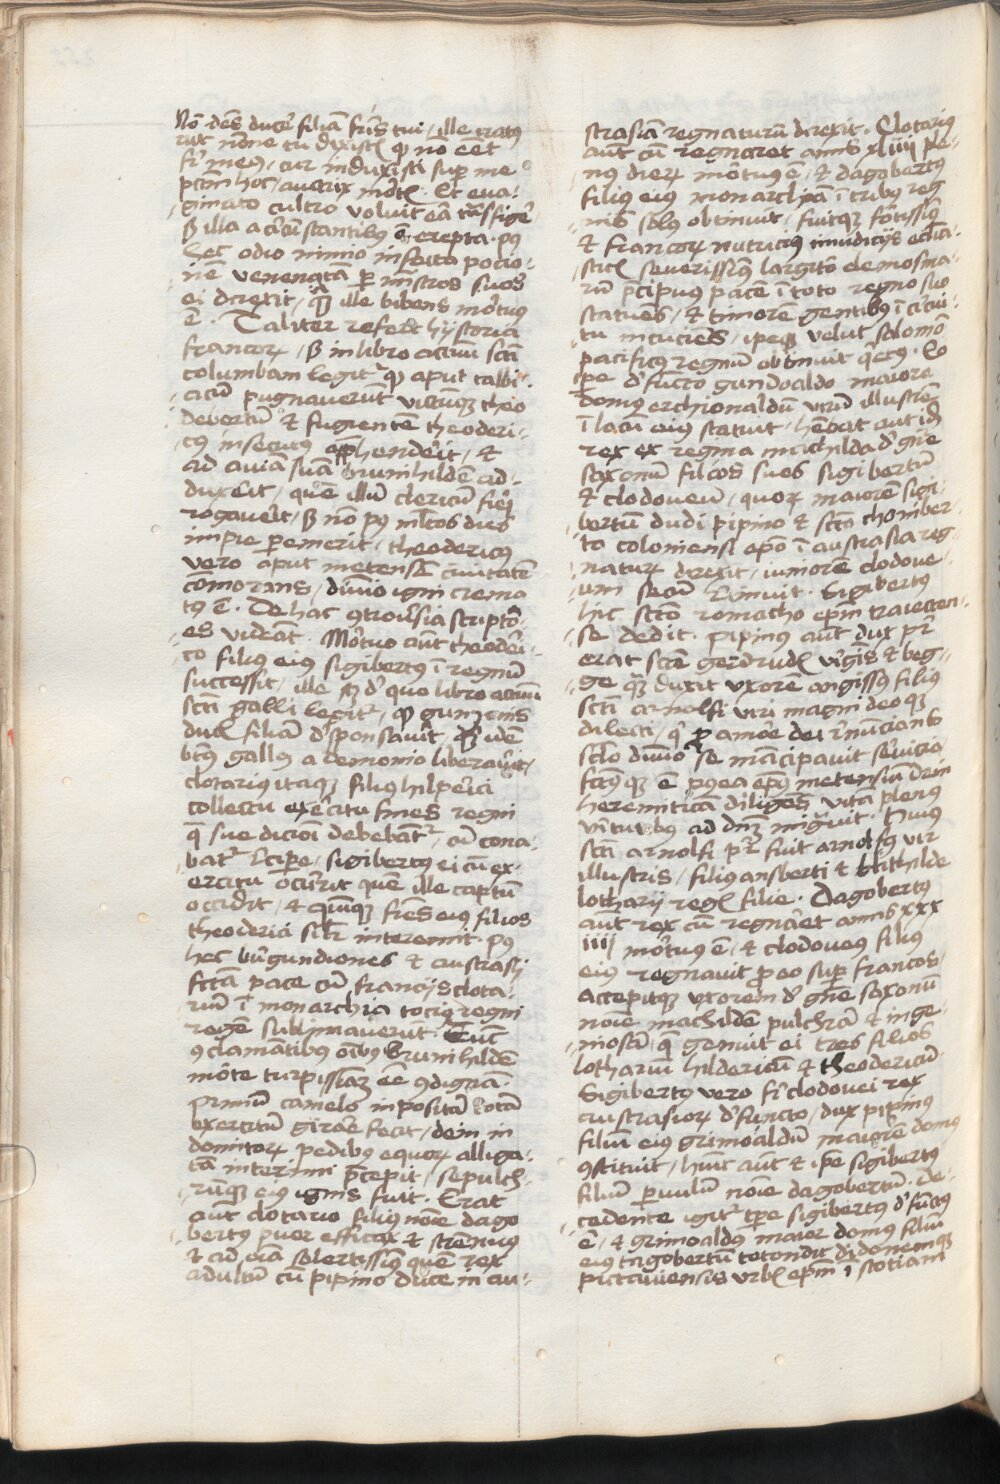 Nō dēs ducē filiā frīs tui / ille iratus
rūt nōne tu dixistī qp no eēt
fr̄ meus, cur induxisti sup me
pctm̄ hoc / auctrix mōrtis. Et eva-
ginato cultro voluit eā tnsfigē
sꝫ illa a circūstantibus ē erepta. pus
hec odio nimio infecta pocio-
nē venenatā p ministros suos
ei direxit, qm̄ ille bibens mortuus
ē. Taliter refert hystoria
francorꝫ, sꝫ in libro actuū scti
columbani legitr qp aput talbi-
acum pugnaverūt utrimqꝫ theo
debertū & fugientē theoderi-
cus insecutus app̄henderit, &
ad aviā suā brunihildē ad-
duxerit, quē illū clericū fieri
rogaverit, sꝫ nō pus mltos dies
impie pemerit, theodericus
vero aput metensē civitatē
cōmorans, divino igni crema
tus ē. De hac controversia scripto-
es vidēāt. Mortuo aūt theoderi-
co filius eius sigibertus ī regnū
successit, ille sꝫ d' quo libro actuum
scti galli legitr, qp gunzonis
ducis filiā d'sponsavit, quā idē
btūs gallus a demonio liberavit,
clotarius itaqꝫ filius hilperici
collectu exercitu fines regni
q̄ sue dicioi debebātr cū cona-
batr recipe, sigibertus ei cū ex-
ercitu occurrit quē ille captū
occidit, & quinqꝫ fres eius filios
theoderici silr interemit. pus
hec burgundiones & austrasij
fctā pace cū francijs clota-
riū ī monarchia tocius regni
regē sublimaverūt. Tūc
conclamātibus oībus brunihildē
mōrte turpissimā eē condignā.
Primū camelo inpositā totā
exercitum girare fecit, dein in
domitorꝫ pedibus equorꝫ alliga-
tā interimi pcepit, sepulch-
rūqꝫ eius ignis fuit. Erat
aūt clotario filius nōīe dago
bertus puer efficax & strēnuus
& ad oīa solertissimus quē rex
adultū cū pipino duce in au-
strasiā regnaturū direxit. Clotarius
aūt cū regnaret annis xliiij ple-
nus dierꝫ mōrtuus ē, & dagobertus
filius eius monarchiā ī tribus reg
nis solus obtinuit, fuitqꝫ fortissimus
& francorꝫ nutricius in iudicijs ecclia-
sticis severissimus largitor elemosina-
rū pcipuus pacē ī toto regno suo
statuēs, & timorē gentibus ī circui-
tu incuciens, ipeqꝫ velut salomō
pacificus regnū obtinuit quetus. Eo
tpe d'fucto gundoaldo maiore
domus erchionaldū virū illustrē
ī locū eius statuit, hēbat aut idē
rex ex regina machilda d' gne
saxonū filios suos sigibertū
& clodoveū, quorꝫ maiorē sigi-
bertum duci pipino & scto chomber
to coloniensi epo ī austrasia reg-
naturū direxit, iuniorē clodove-
um secū retinuit. Sigibertus
hic scto romacho epm traiecten-
se dedit. pipinus aūt dux pr̄
erat scte gerdrudis virgis & beg-
ge quā duxit uxorē angissus filius
scti arnolfi viri magni deo qꝫ
dilecti, qi p amore dei renūcians
sclo divino se mācipavit servicio
fctus qꝫ ē pus ea epus metensium dein
heremiticā diligens vitā plenus
virtutibus ad dnm migravit. Huius
scti arnolfi pr̄ fuit arnolfus vir
illustris, filius ansberti & blithilde
lotharij regis filie. Dagobertus
aūt rex cū regnaret annis xxx
iiij mōrtuus ē, & clodoveus filius
eius regnavit p eo sup francos,
accepitqꝫ uxorem d' gne saxonū
nōīe machildē pulchrā & inge-
niosā, q̄ genuit ei tres filios
lotharium hildericū & theodericū.
Sigibertus vero fr̄ clodovei rex
austrasiorꝫ d'functo, dux pipinus
filiū eius grimoaldū maiorē domus
constituit, hūit aūt & ipe sigibertus
filium parvulū nōīe dagobertū. De-
cedente igitr tpe sigibertus d'fūctus
ē, & grimoaldus maior domus filiū
eius dagobertū totondit didonemqꝫ
pictaviensis urbis epm ī scotiam